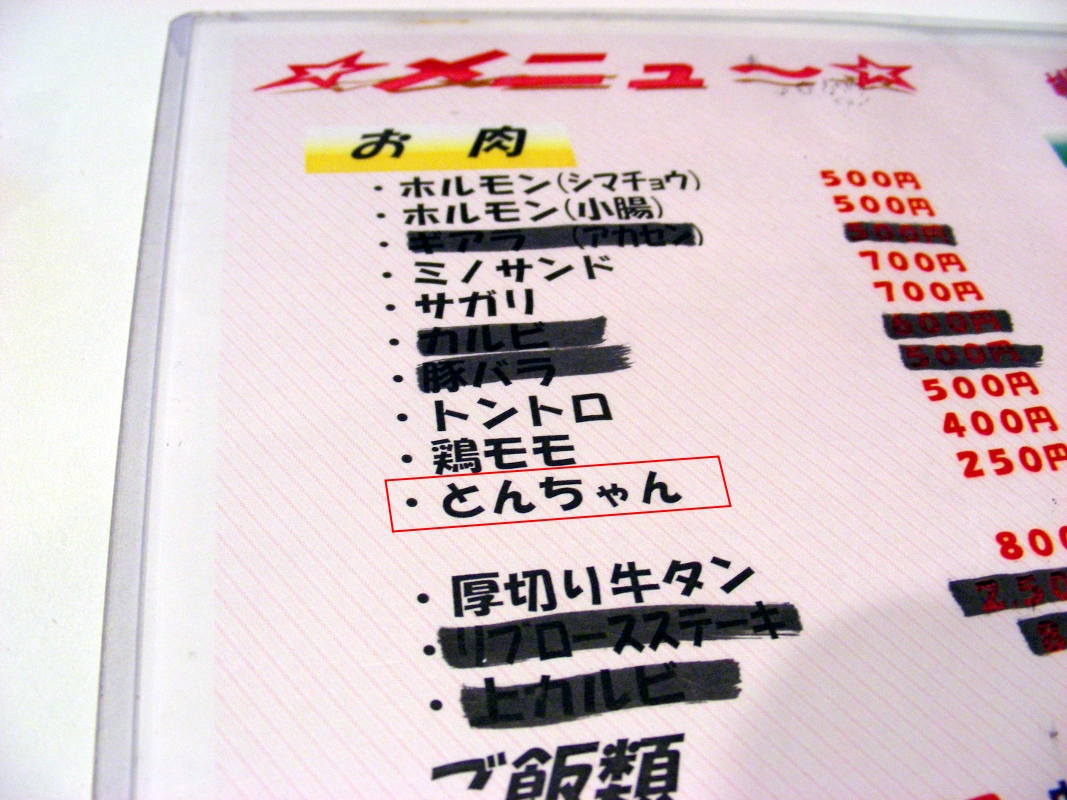 ☆メニュ〜☆
お 肉
・ホルモン(シマチョウ) 500円
・ホルモン(小腸) 500円
・ギアラ (アカセン)
・ミノサンド 700円
・サガリ 700円
・カルビ 600円
・豚バラ 500円
・トントロ 500円
・鶏モモ 400円
・とんちゃん 250円
・厚切り牛タン 800
・リブロースステーキ 2,50
・上カルビ
ご飯類